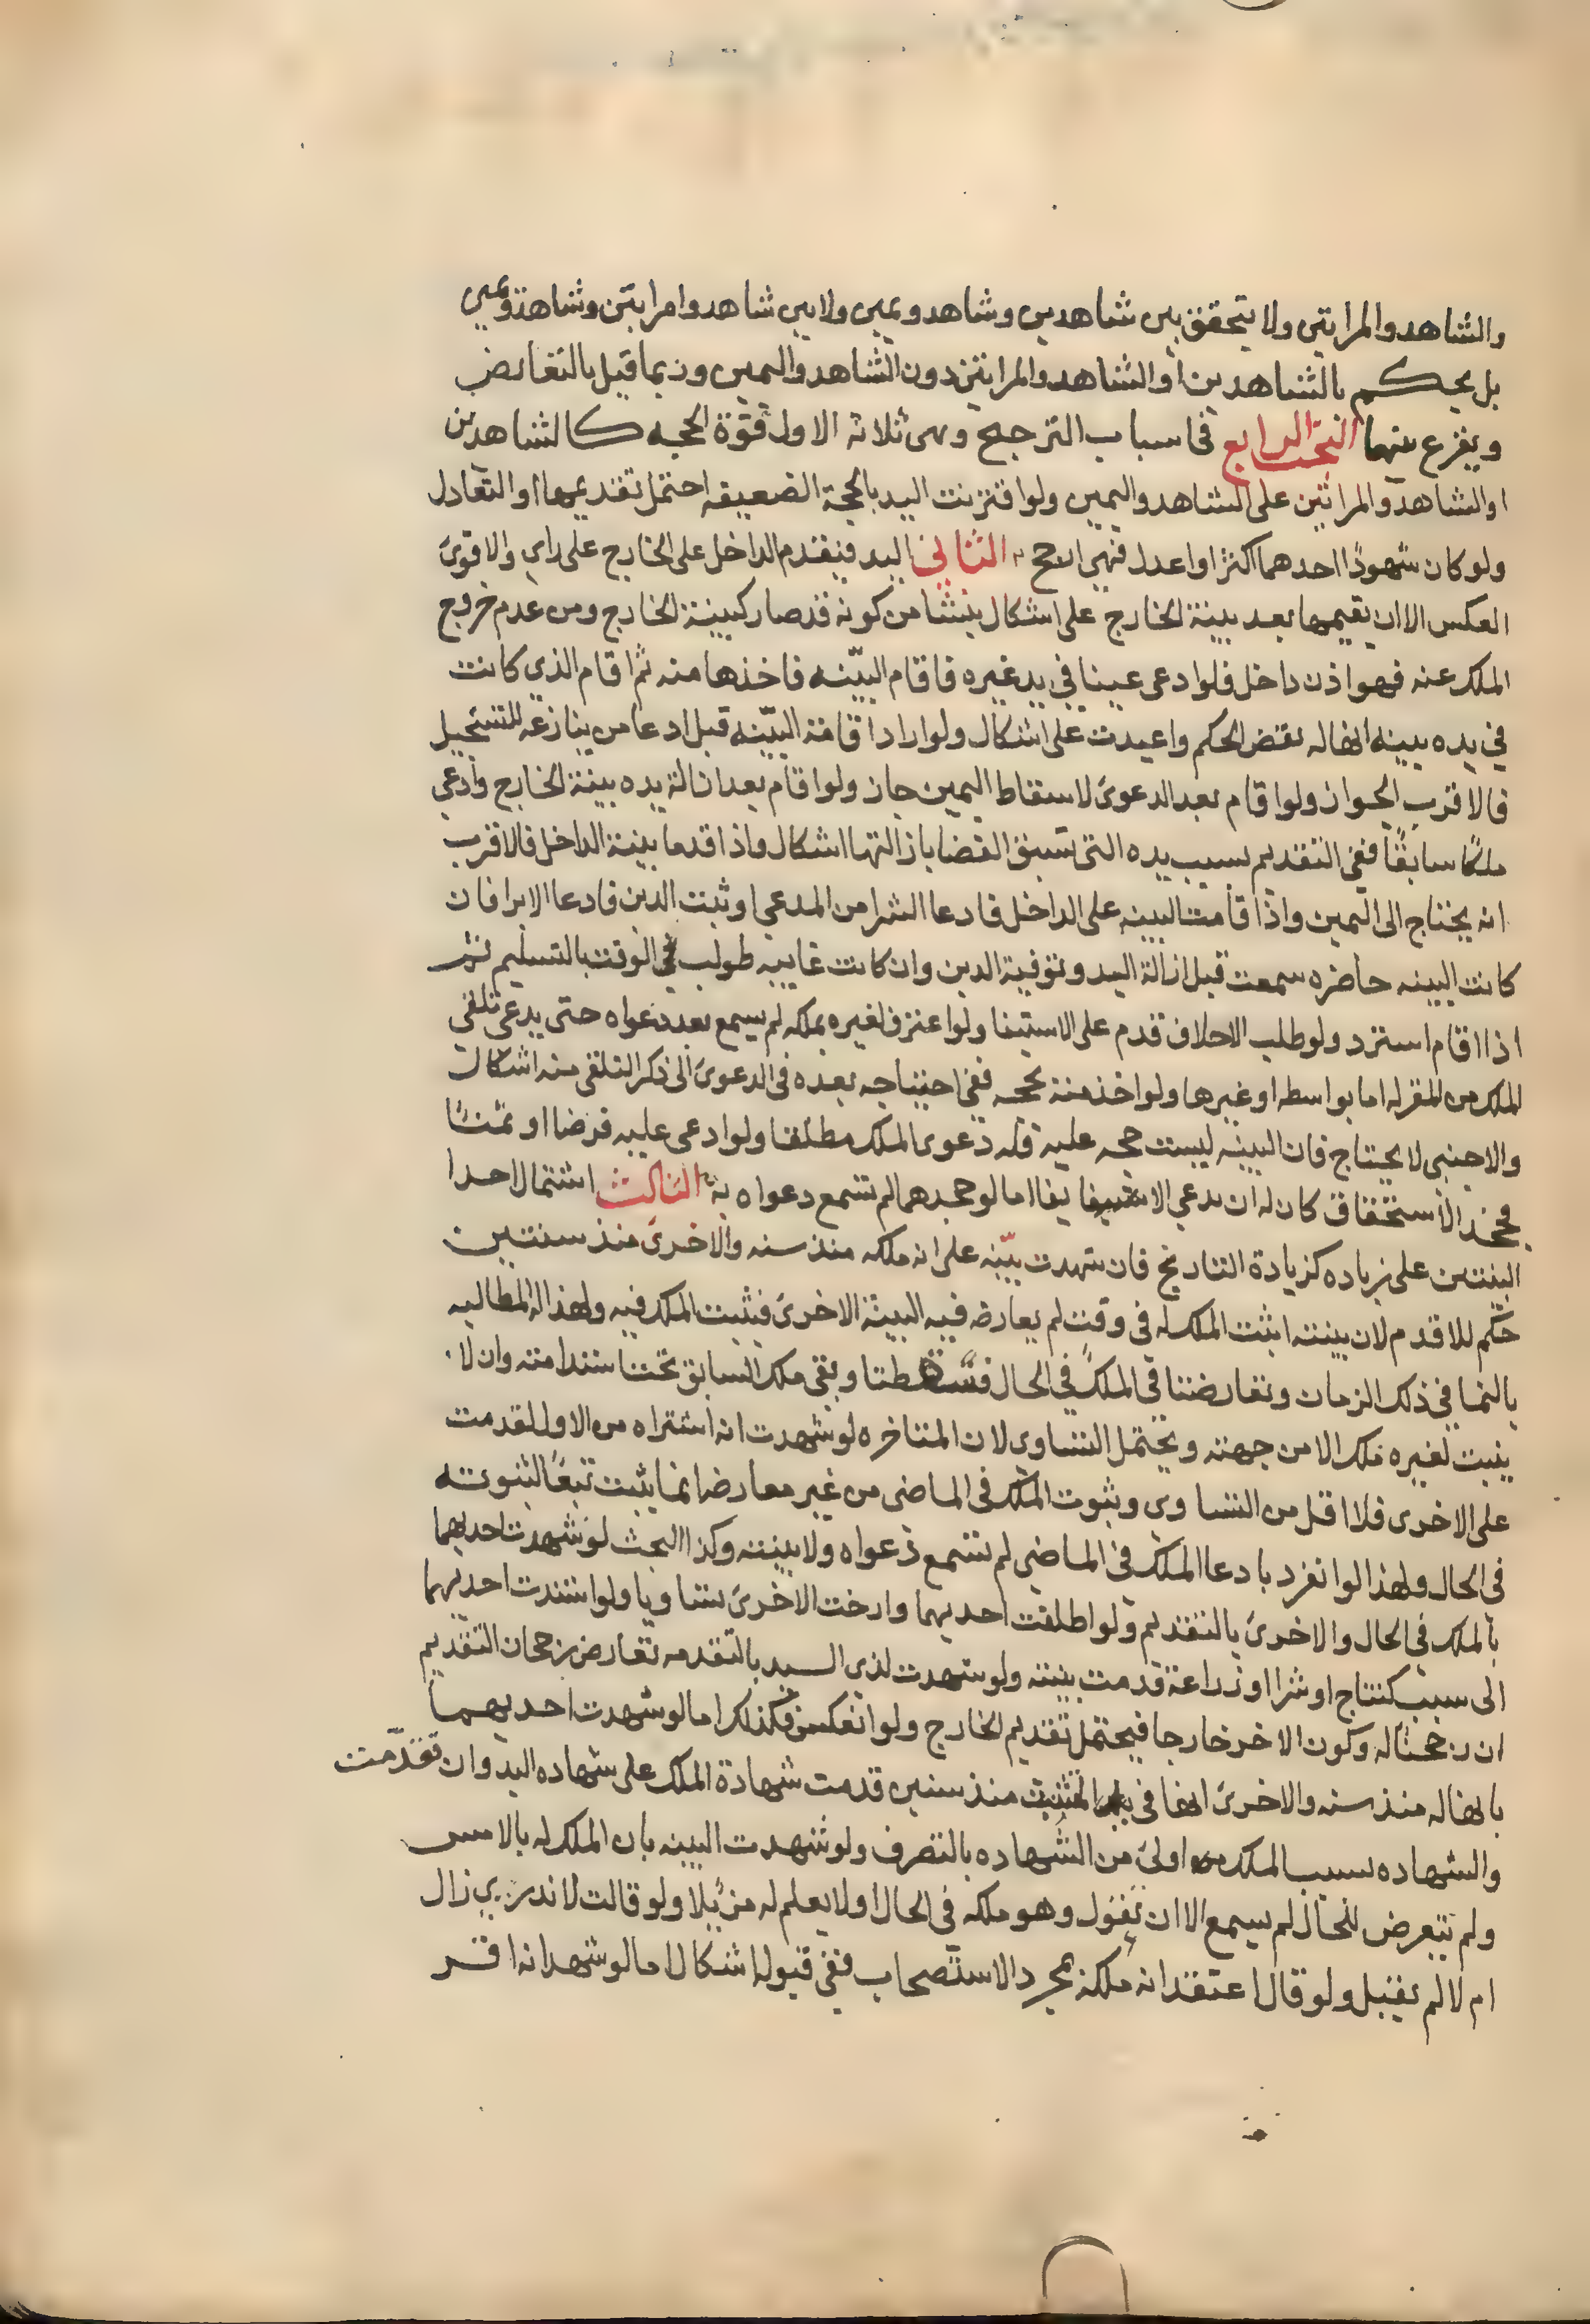 والشاهد والمراتين ولا يتحقق بين شاهدين وشاهد ويمين ولا بين شاهد وامراتين وشاهد ويمين
بل يحكم بالشاهدين او الشاهد والمراتين دون الشاهد واليمين وربما قيل بالتعارض
ويقرع بينهما البحث الرابع في اسباب الترجيح وهي ثلاثة الاول قوة الحجه كالشاهدين
او الشاهد والمراتين على الشاهد واليمين ولو اقترنت اليد بالحجة الضعيفه احتمل تقديمها او التعادل
ولو كان شهود احدهما اكثر او اعدل فهي ارجح الثاني اليد فيقدم الداخل على الخارج على راي والاقوى
العكس الا ان يقيمها بعد بينة الخارج على اشكال ينشا من كونه قد صار كبينة الخارج ومن عدم خروج
الملك عنه فهو اذن داخل فلو ادعى عينا في يد غيره فاقام البينه فاخذها منه ثم اقام الذي كانت
في يده بينه انها له نقض الحكم واعيدت على اشكال ولو اراد اقامة البينه قبل ادعا من ينازعه للتسجيل
فالاقرب الجواز ولو اقام بعد الدعوى لاسقاط اليمين جاز ولو اقام بعد ازالة يده ببينة الخارج وادعى
ملكا سابقا ففي التقديم بسبب يده التي سبق القضا بازالتها اشكال واذا قدما بينة الداخل فالاقرب
انه يحتاج الى اليمين واذا قامت البينه على الداخل فادعا الشرا من المدعي او ثبت الدين فادعا الابرا فان
كانت البينه حاضره سمعت قبل ازالة اليد وتوفية الدين وان كانت غايبه طولب في الوقت بالتسليم ثم
اذا اقام استرد ولو طلب الاحلاف قدم على الاستيفا ولو اعترف لغيره بملكه لم يسمع بعد دعواه حتى يدعي تلقي
الملك من المقر له اما بواسطه او غيرها ولو اخذ منه بحجه ففي احتياجه بعده في الدعوى الى ذكر التلقي منه اشكال
والاجنبي لا يحتاج فان البينه ليست حجه عليه فله دعوى الملك مطلقا ولو ادعى عليه قرضا او ثمنا
فجحد الاستحقاق كان له ان يدعي الايفا اما لو جحدهما لم تسمع دعواه به الثالث اشتمال احدا
البنتين على زياده كزيادة التاريخ فان شهدت بينه على انه ملكه منذ سنه والاخرى منذ سنتين
حكم للاقدم لان بينته اثبتت الملك له في وقت لم يعارضه فيه البينة الاخرى فيثبت الملك فيه ولهذا له المطالبه
بالنما في ذلك الزمان وتعارضتا في الملك في الحال فتساقطتا وبقي ملك السابق تحت استدامته وان لا
يثبت لغيره ملك الا من جهته ويحتمل التساوي لان المتاخره لو شهدت انه اشتراه من الاول لقدمت
على الاخرى فلا اقل من التساوي وثبوت الملك في الماضي من غير معارضه انما يثبت تبعا لثبوته
في الحال ولهذا لو انفرد بادعا الملك في الماضي لم تسمع دعواه ولا بينته وكذا البحث لو شهدت احديهما
بالملك في الحال والاخرى بالتقديم ولو اطلقت احديهما وارخت الاخرى تساويا ولو استندت احديهما
الى سبب كنتاج او شرا او زراعة قدمت بينته ولو شهدت لذي اليد بالتقدمه تعارض رجحان التقديم
ان رجحنا له وكون الاخر خارجا فيحتمل تقديم الخارج ولو انعكس فكذلك اما لو شهدت احديهما
بانها له منذ سنه والاخرى انها في يد المتشبث منذ سنين قدمت شهادة الملك على شهاده اليد وان تقدمت
والشهاده بسبب الملك اولى من الشهاده بالتصرف ولو شهدت البينه بان الملك له بالامس
ولم تتعرض للحال لم يسمع الا ان تقول وهو ملكه في الحال او لا يعلم له مزيلا ولو قالت لا ندري زال
ام لا لم يقبل ولو قال اعتقد انه ملكه بمجرد الاستصحاب ففي قبوله اشكال اما لو شهد انه اقر